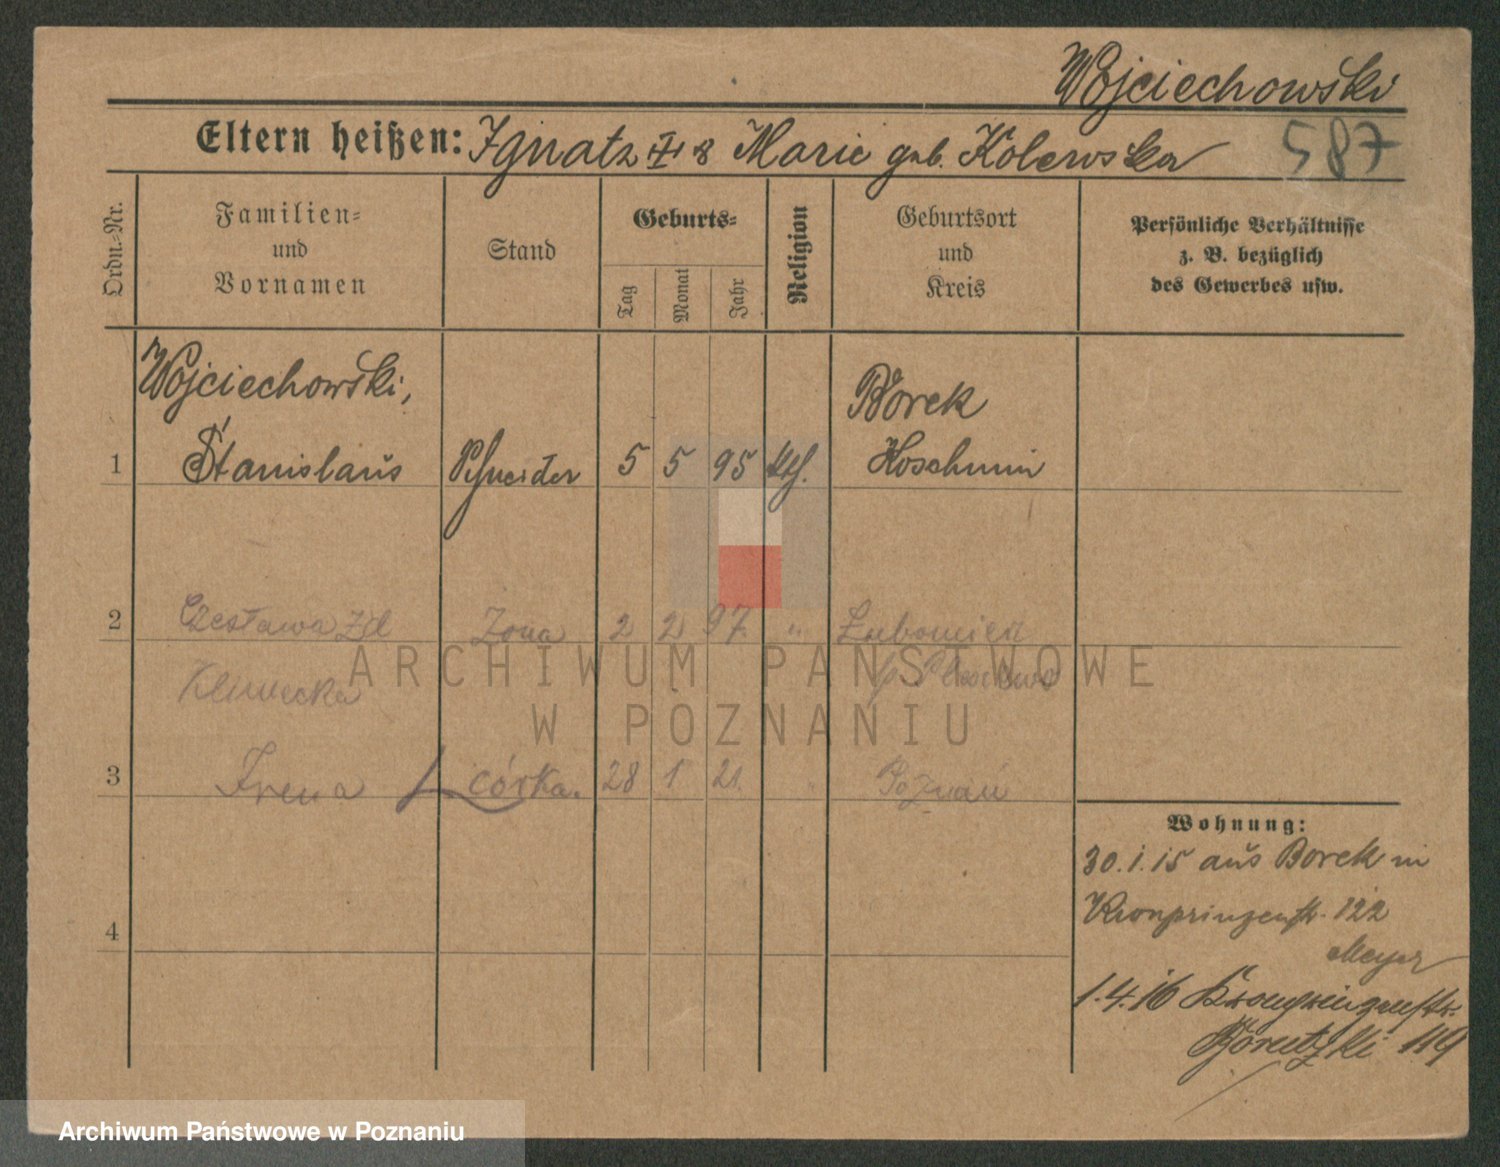 Wojciechowski
Eltern heißen: Ignatz u. Marie geb. Kolewska
587
Ordn.-Nr.
Familien-
und
Vornamen
Stand
Geburts-
Tag
Monat
Jahr
Religion
Geburtsort
und
Kreis
Persönliche Verhältnisse
z. B. bezüglich
des Gewerbes usw.
Wojciechowski,
1 Stanislaus Schneider 5 5 95 kth.
Borek
Koschmin
2 Czesława Żona 2 2 97 "
3 Irena córka. 28 1 21 Poznań
4
Wohnung:
30.1.15 aus Borek in
Kronprinzenstr. 122
Meyer
1.4.16 Kronprinzenstr.
114
ARCHIWUM PAŃSTWOWE
W POZNANIU
Archiwum Państwowe w Poznaniu